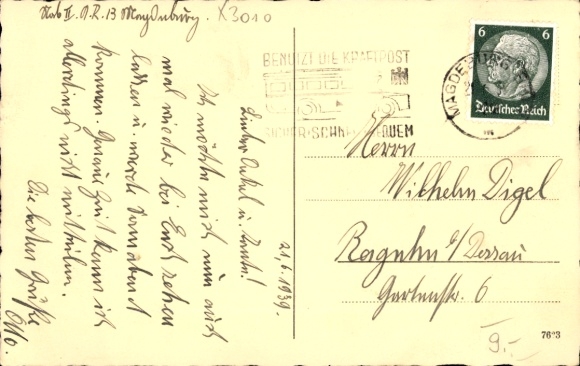 Stab II. A.R. 13 Magdeburg. X3010
21.6.1939.
Lieber Onkel u. Tante!
Ich möchte mich nun auch
mal wieder bei Euch sehen
lassen u. werde Sonnabend
kommen. Genaue Zeit kann ich
allerdings nicht mitteilen.
Die besten Grüße
Otto.
BENUTZT DIE KRAFTPOST
SICHER·SCHNELL·BEQUEM
MAGDEBURG
6 6
Deutsches Reich
Herrn
Wilhelm Digel
Raguhn b/Dessau
Gartenstr. 6
7623
9.-